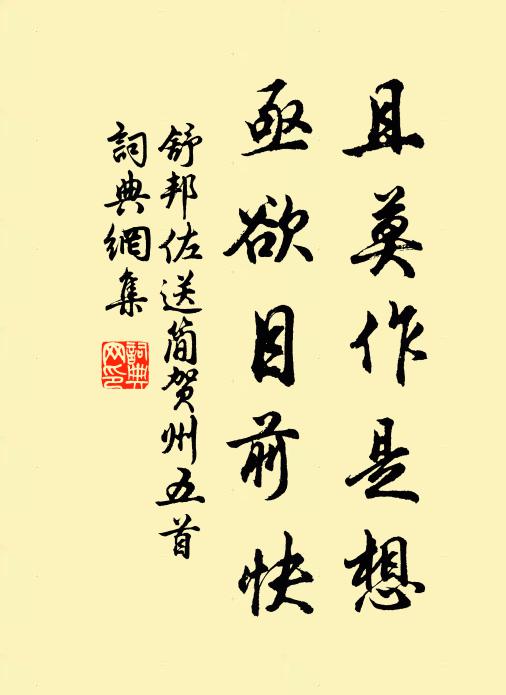 且莫作是想
亟欲目前快
舒邦佐送简贺州五首
詞典網集
詞典網印